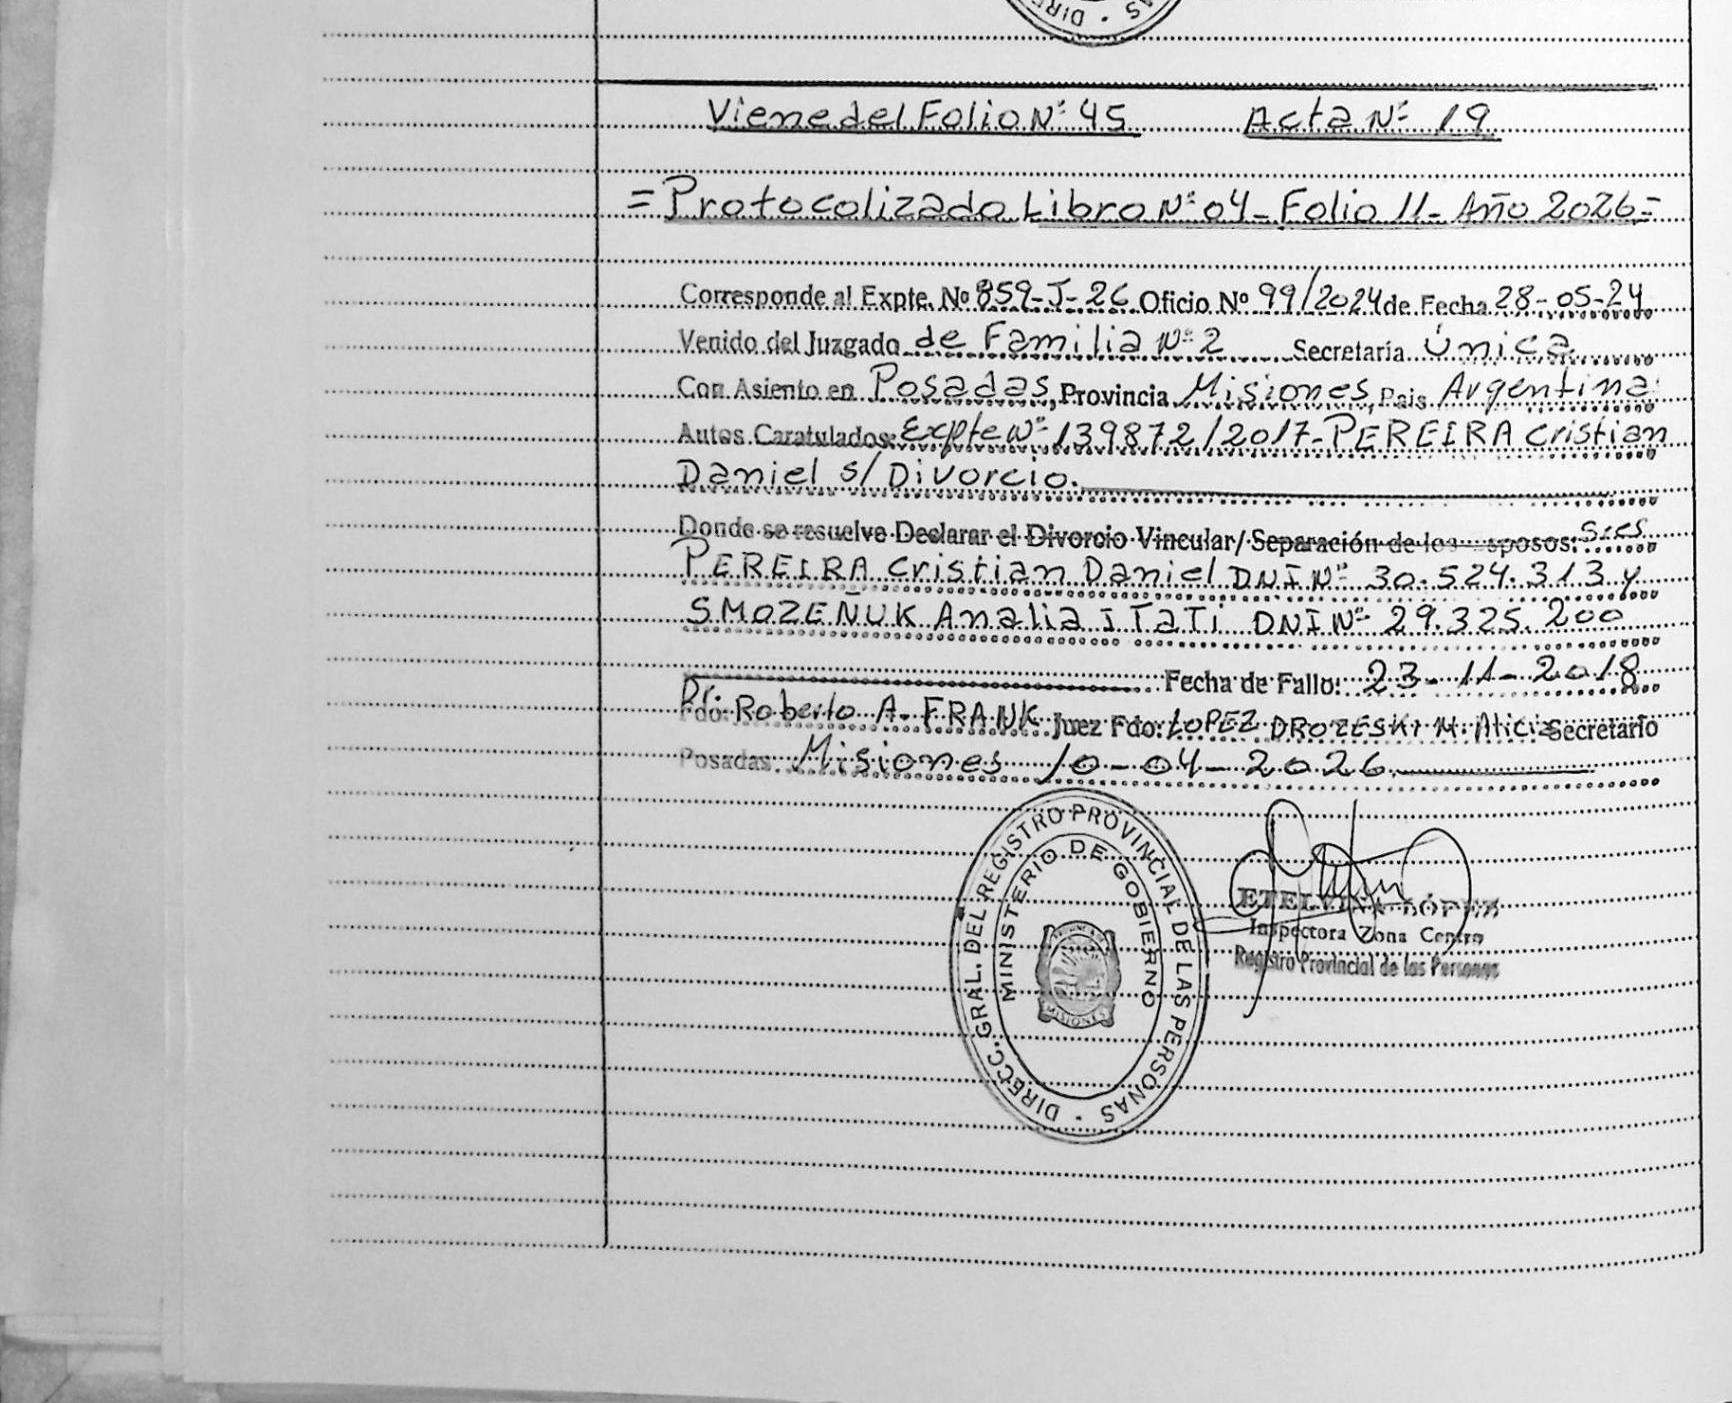 DIRE · AS
Viene del Folio Nº 45 Acta Nº 19
= Protocolizado Libro Nº 04 - Folio 11 - Año 2026 =
Corresponde al Expte. Nº 859-J-26 Oficio Nº 99/2024 de Fecha 28-05-24
Venido del Juzgado de Familia Nº 2 Secretaría Única
Con Asiento en Posadas, Provincia Misiones, Pais Argentina
Autos Caratulados: Expte Nº 139872/2017-PEREIRA Cristian
Daniel s/ Divorcio.
Donde se resuelve Declarar el Divorcio Vincular/ Separación de los sposos: Sres
PEREIRA Cristian Daniel DNI Nº 30.524.313 y
SMOZEÑUK Analia iTaTi DNI Nº 29.325.200
Fecha de Fallo: 23-11-2018
Fdo: Dr. Roberto A. FRANK Juez Fdo: LOPEZ DROZESKI M. Alicia Secretario
Posadas. Misiones 10-04-2026
DIRECC. GRAL. DEL REGISTRO PROVINCIAL DE LAS PERSONAS ·
MINISTERIO DE GOBIERNO
MISIONES
ETELVINA LÓPEZ
Inspectora Zona Centro
Registro Provincial de las Personas